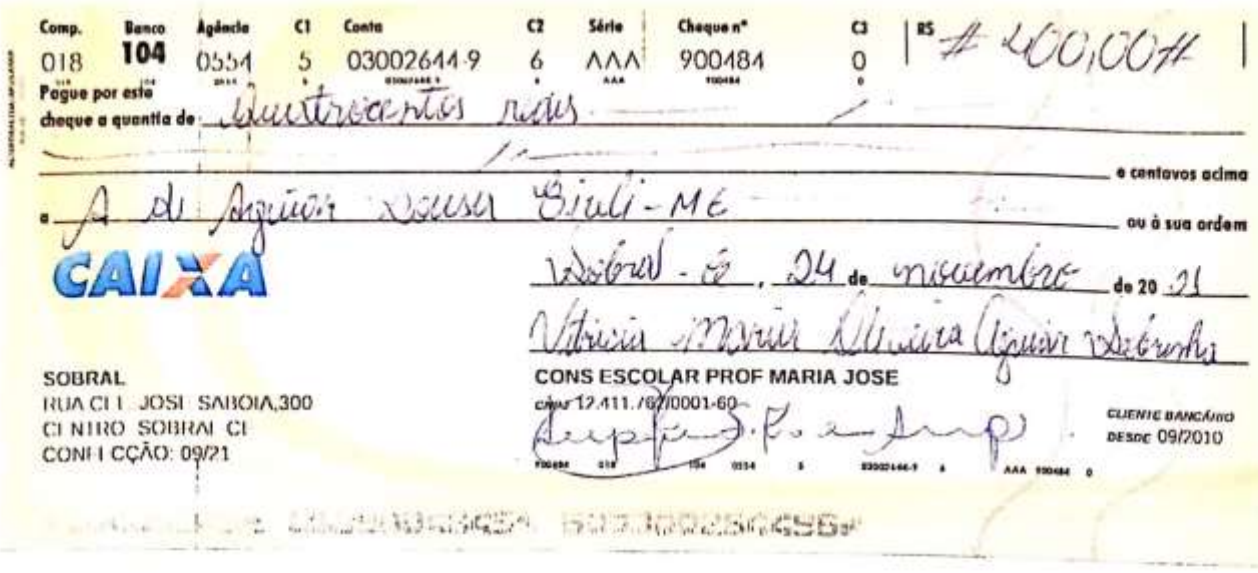 Comp. Banco Agência C1 Conta C2 Série Cheque nº C3 R$ # 400,00#
018 104 0554 5 03002644-9 6 AAA 900484 0
Pague por este
cheque a quantia de Quatrocentos reais
e centavos acima
a A de Aguiar Sousa Giuli-ME ou à sua ordem
CAIXA
Sobral - Ce, 24 de novembro de 20 21
Maria Oliveira Aguiar Sobrinha
SOBRAL
RUA CEL JOSE SABOIA,300
CENTRO SOBRAL CE
CONFECÇÃO: 09/21
CONS ESCOLAR PROF MARIA JOSE
CNPJ 12.411.767/0001-60
CLIENTE BANCÁRIO
DESDE 09/2010
900484 018 104 0554 5 03002644-9 6 AAA 900484 0